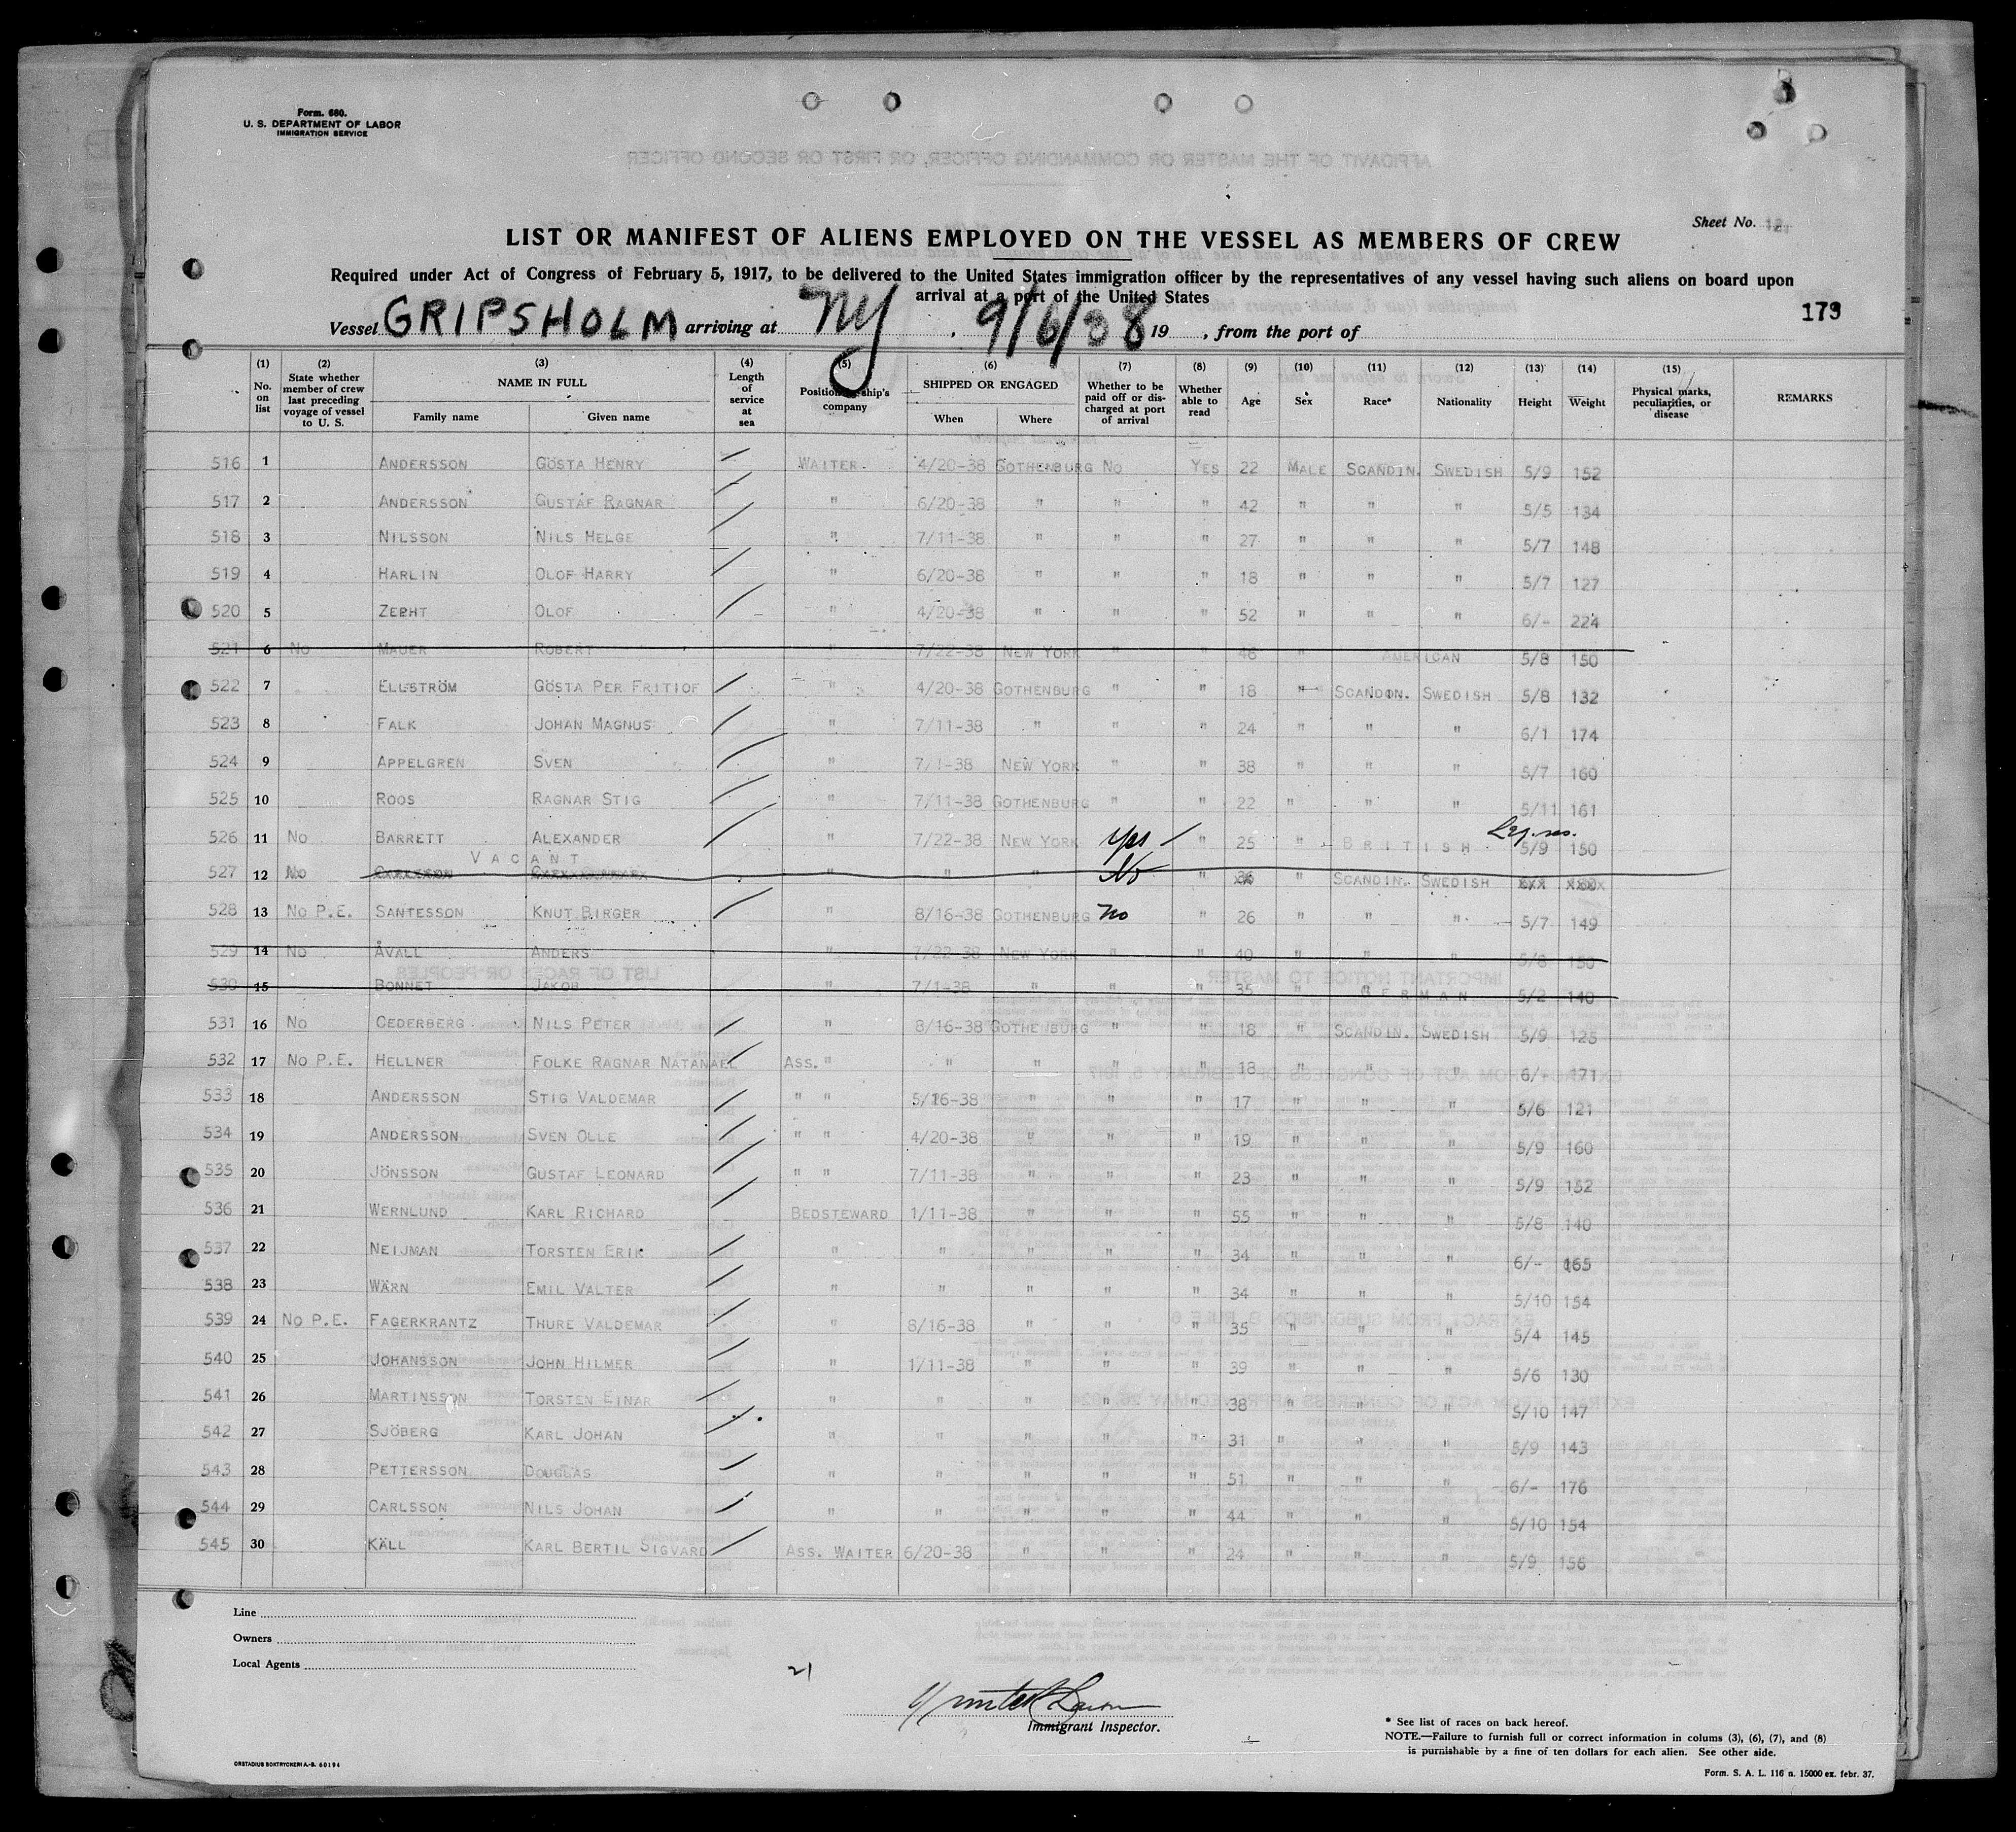 Form. 680.
U. S. DEPARTMENT OF LABOR
IMMIGRATION SERVICE
Sheet No.
LIST OR MANIFEST OF ALIENS EMPLOYED ON THE VESSEL AS MEMBERS OF CREW
Required under Act of Congress of February 5, 1917, to be delivered to the United States immigration officer by the representatives of any vessel having such aliens on board upon
arrival at a port of the United States
173
Vessel GRIPSHOLM arriving at NY , 9/6/38 19 , from the port of
(1) No. on list
(2) State whether member of crew last preceding voyage of vessel to U. S.
(3) NAME IN FULL Family name Given name
(4) Length of service at sea
(5) Position ship's company
(6) SHIPPED OR ENGAGED When Where
(7) Whether to be paid off or discharged at port of arrival
(8) Whether able to read
(9) Age
(10) Sex
(11) Race*
(12) Nationality
(13) Height
(14) Weight
(15) Physical marks, peculiarities, or disease
REMARKS
516 1 ANDERSSON GÖSTA HENRY WAITER 4/20-38 GOTHENBURG NO YES 22 MALE SCANDIN. SWEDISH 5/9 152
517 2 ANDERSSON GUSTAF RAGNAR " 6/20-38 " " " 42 " " " 5/5 134
518 3 NILSSON NILS HELGE " 7/11-38 " " " 27 " " " 5/7 148
519 4 HARLIN OLOF HARRY " 6/20-38 " " " 18 " " " 5/7 127
520 5 ZEPHT OLOF " 4/20-38 " " " 52 " " " 6/- 224
521 6 NO MAUER ROBERT " 7/22-38 NEW YORK " " 46 " AMERICAN 5/8 150
522 7 ELLSTRÖM GÖSTA PER FRITIOF " 4/20-38 GOTHENBURG " " 18 " SCANDIN. SWEDISH 5/8 132
523 8 FALK JOHAN MAGNUS " 7/11-38 " " " 24 " " " 6/1 174
524 9 APPELGREN SVEN " 7/1-38 NEW YORK " " 38 " " " 5/7 160
525 10 ROOS RAGNAR STIG " 7/11-38 GOTHENBURG " " 22 " " " 5/11 161
526 11 NO BARRETT ALEXANDER " 7/22-38 NEW YORK Yes " 25 " BRITISH 5/9 150
VACANT
527 12 NO CARLSSON " " " No " 36 " SCANDIN. SWEDISH
528 13 NO P.E. SANTESSON KNUT BIRGER " 8/16-38 GOTHENBURG No " 26 " " " 5/7 149
529 14 NO ÅVALL ANDERS " 7/22-38 NEW YORK " " 40 " " " 5/8 150
530 15 BONNET JAKOB " 7/1-38 " " " 35 " GERMAN 5/2 140
531 16 NO CEDERBERG NILS PETER " 8/16-38 GOTHENBURG " " 18 " SCANDIN. SWEDISH 5/9 125
532 17 NO P.E. HELLNER FOLKE RAGNAR NATANAEL ASS. " " " " " 18 " " " 6/- 171
533 18 ANDERSSON STIG VALDEMAR " " 5/16-38 " " " 17 " " " 5/6 121
534 19 ANDERSSON SVEN OLLE " " 4/20-38 " " " 19 " " " 5/9 160
535 20 JÖNSSON GUSTAF LEONARD " " 7/11-38 " " " 23 " " " 5/9 152
536 21 WERNLUND KARL RICHARD BEDSTEWARD 1/11-38 " " " 55 " " " 5/8 140
537 22 NEIJMAN TORSTEN ERIK " " " " " 34 " " " 6/- 165
538 23 WÄRN EMIL VALTER " " " " " 34 " " " 5/10 154
539 24 NO P.E. FAGERKRANTZ THURE VALDEMAR " 8/16-38 " " " 35 " " " 5/4 145
540 25 JOHANSSON JOHN HILMER " 1/11-38 " " " 39 " " " 5/6 130
541 26 MARTINSSON TORSTEN EINAR " " " " " 38 " " " 5/10 147
542 27 SJÖBERG KARL JOHAN " " " " " 31 " " " 5/9 143
543 28 PETTERSSON DOUGLAS " " " " " 51 " " " 6/- 176
544 29 CARLSSON NILS JOHAN " " " " " 44 " " " 5/10 154
545 30 KÄLL KARL BERTIL SIGVARD ASS. WAITER 6/20-38 " " " 24 " " " 5/9 156
Line
Owners
Local Agents
21
Immigrant Inspector.
* See list of races on back hereof.
NOTE.—Failure to furnish full or correct information in colums (3), (6), (7), and (8)
is purnishable by a fine of ten dollars for each alien. See other side.
ORSTADIUS BOKTRYCKERI A.-B. 60194
Form. S. A. L. 116 n. 15000 ex. febr. 37.